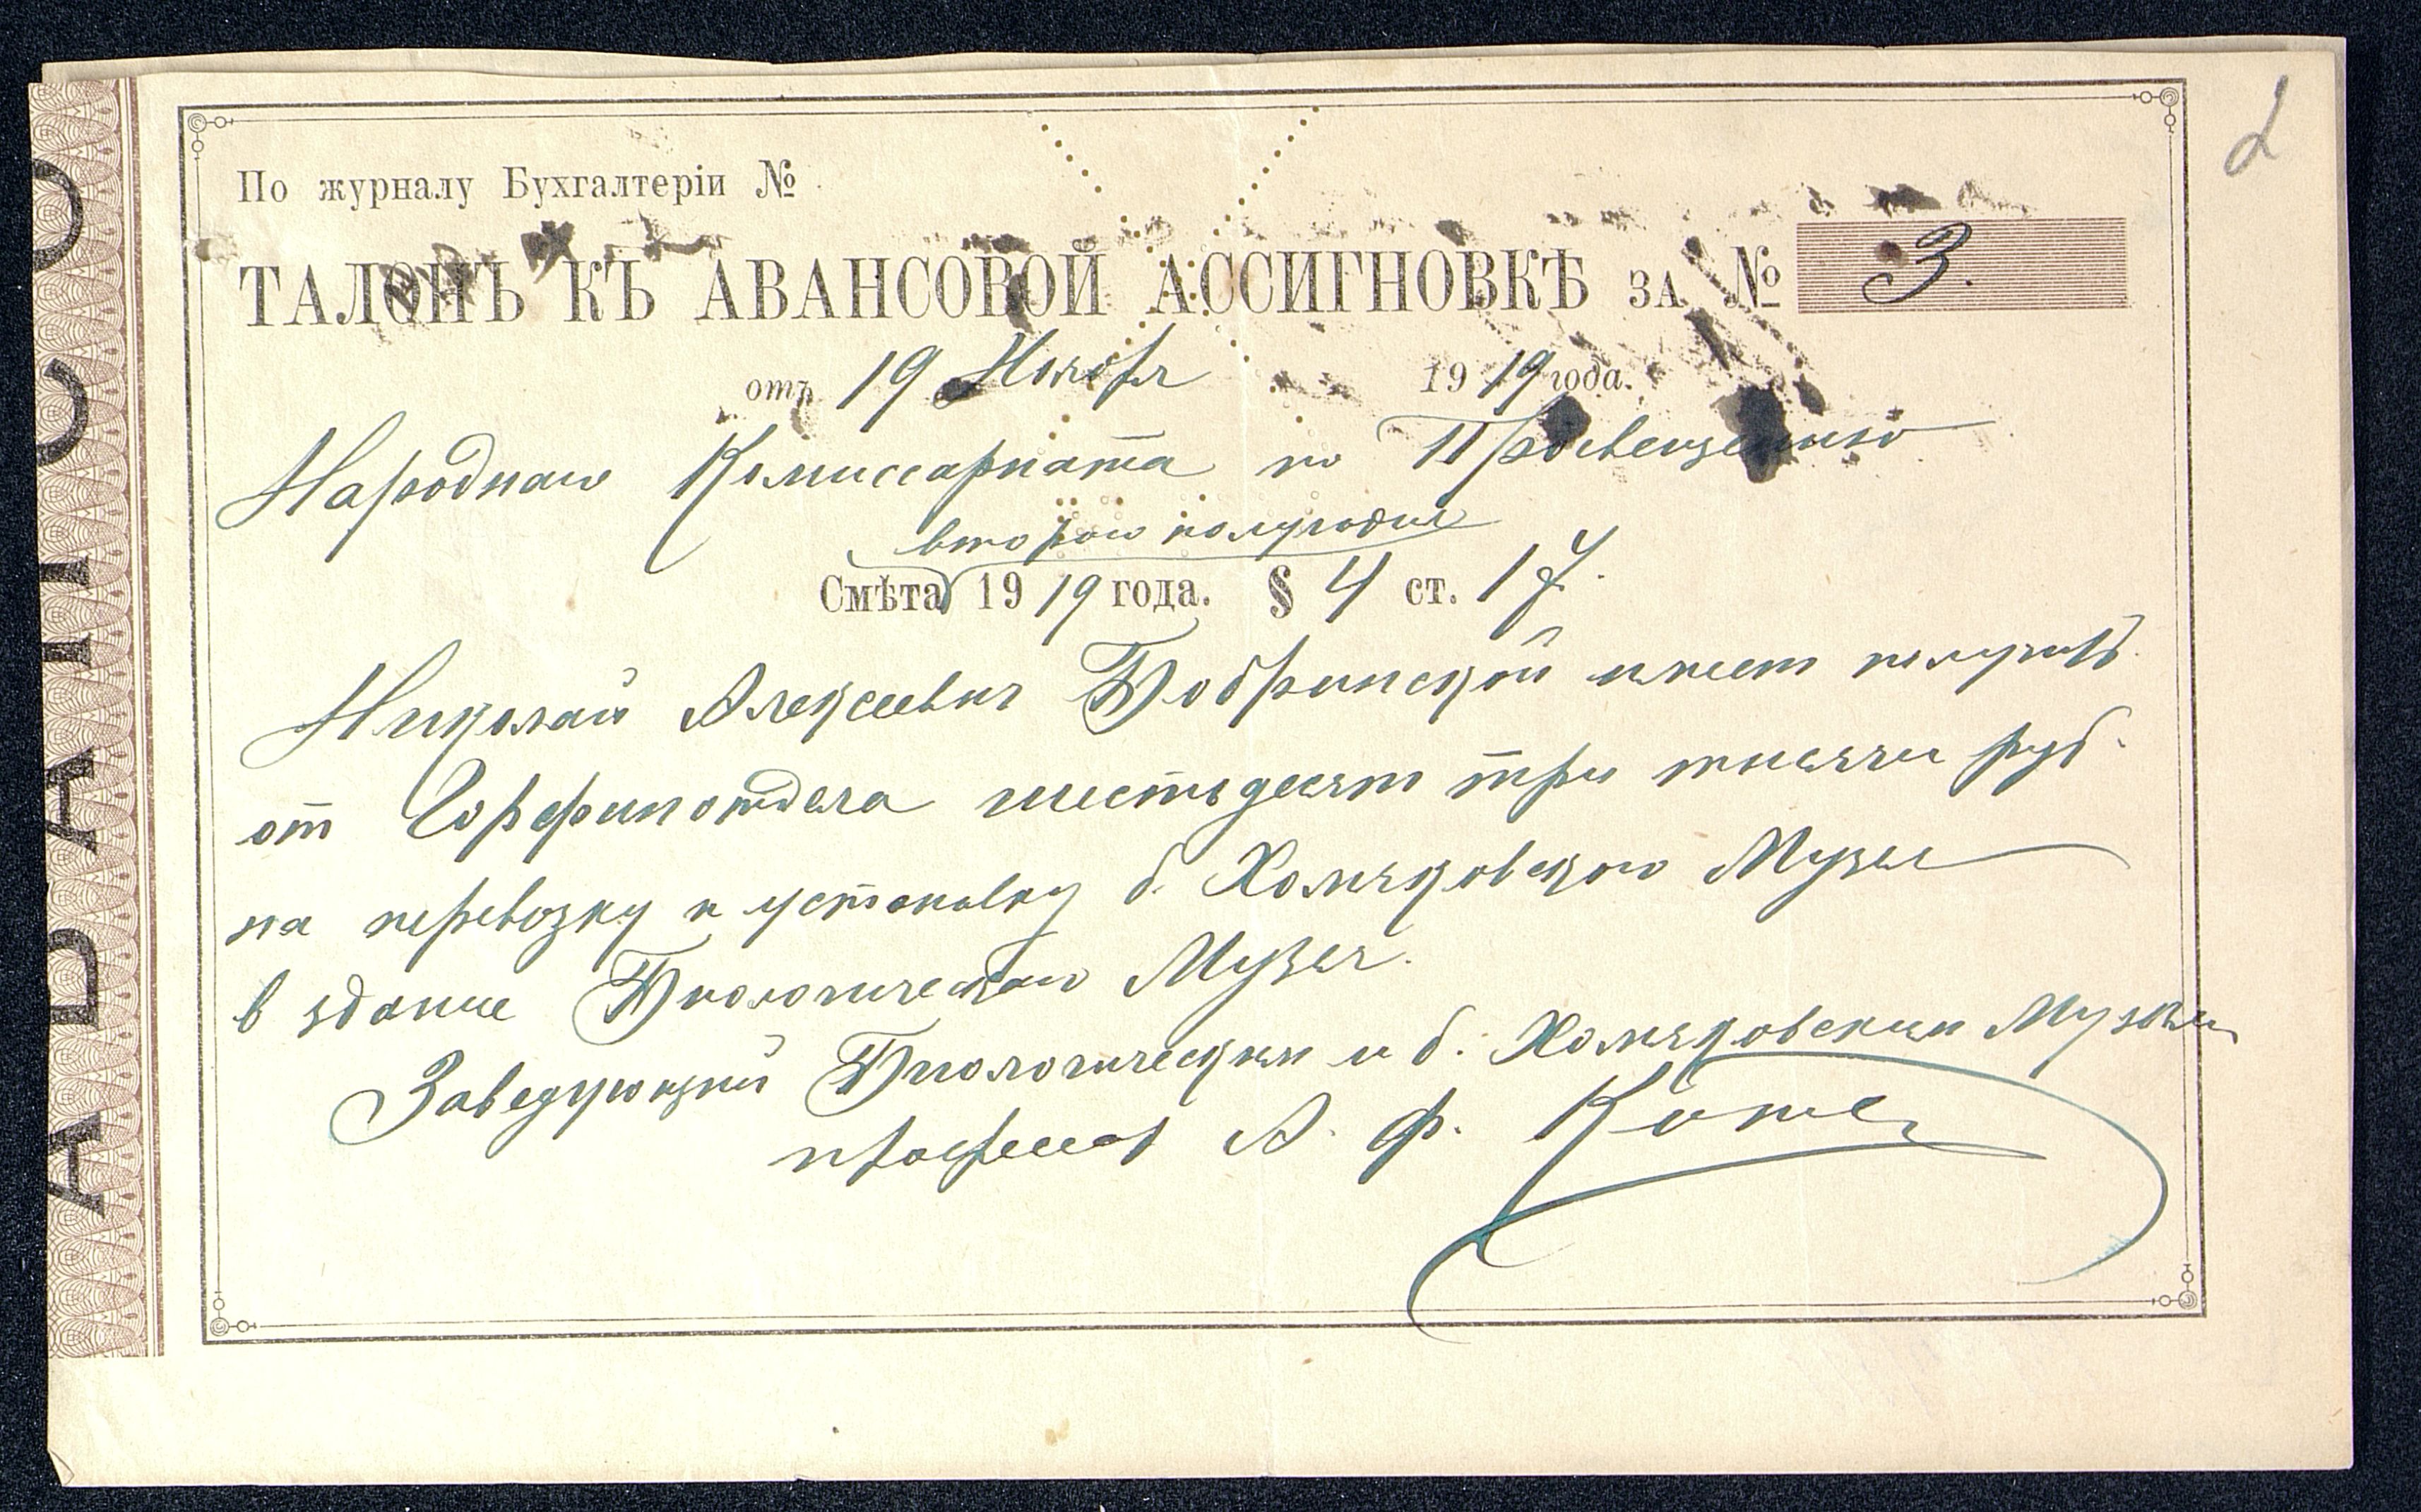 2
По журналу Бухгалтеріи №
ТАЛОНЪ КЪ АВАНСОВОЙ АССИГНОВКѢ ЗА № 3.
отъ 19 Ноября 1919 года.
Народнаго Комиссариата по Просвещению
второго полугодия
Смѣта 1919 года. § 4 ст. 17.
Николай Алексеевич Бобринской имеет получить
от Горфинотдела шестьдесят три тысячи руб.
на перевозку и установку б. Хомяковского Музея
в здание Биологического Музея.
Заведующий Биологическим и б. Хомяковским Музеями
професор А. Ф. Котс